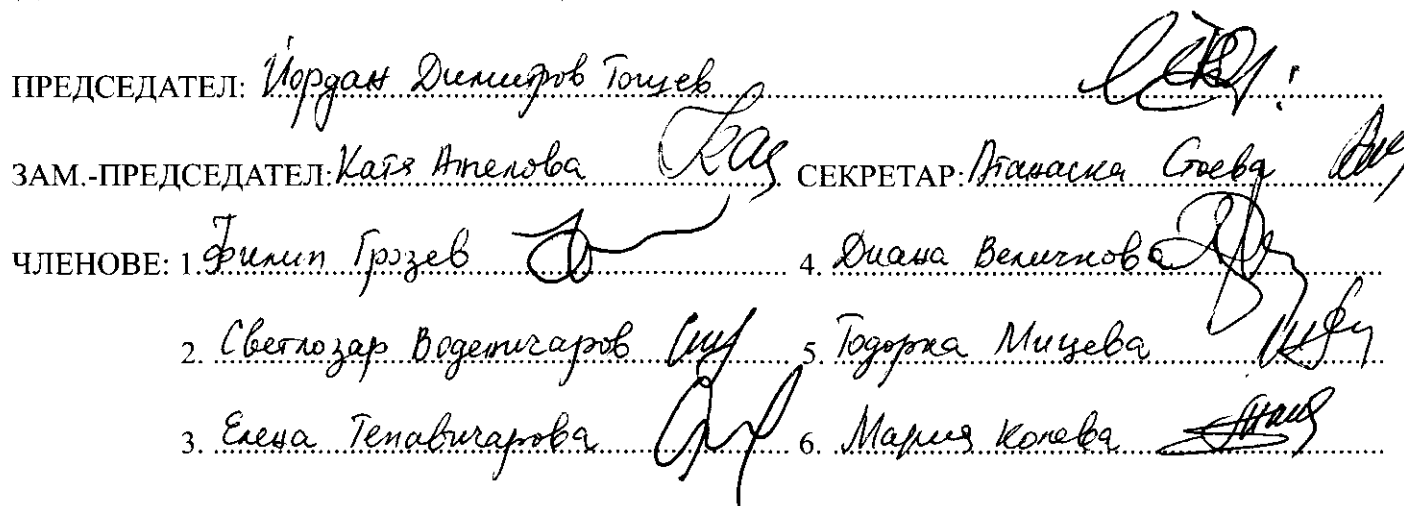 ПРЕДСЕДАТЕЛ: Йордан Димитров Тошев
ЗАМ.-ПРЕДСЕДАТЕЛ: Катя Ангелова СЕКРЕТАР: Атанаска Стоева
ЧЛЕНОВЕ: 1. Филип Грозев 4. Диана Величкова
2. Светлозар Воденичаров 5. Тодорка Мицева
3. Елена Тепавичарова 6. Мария Колева